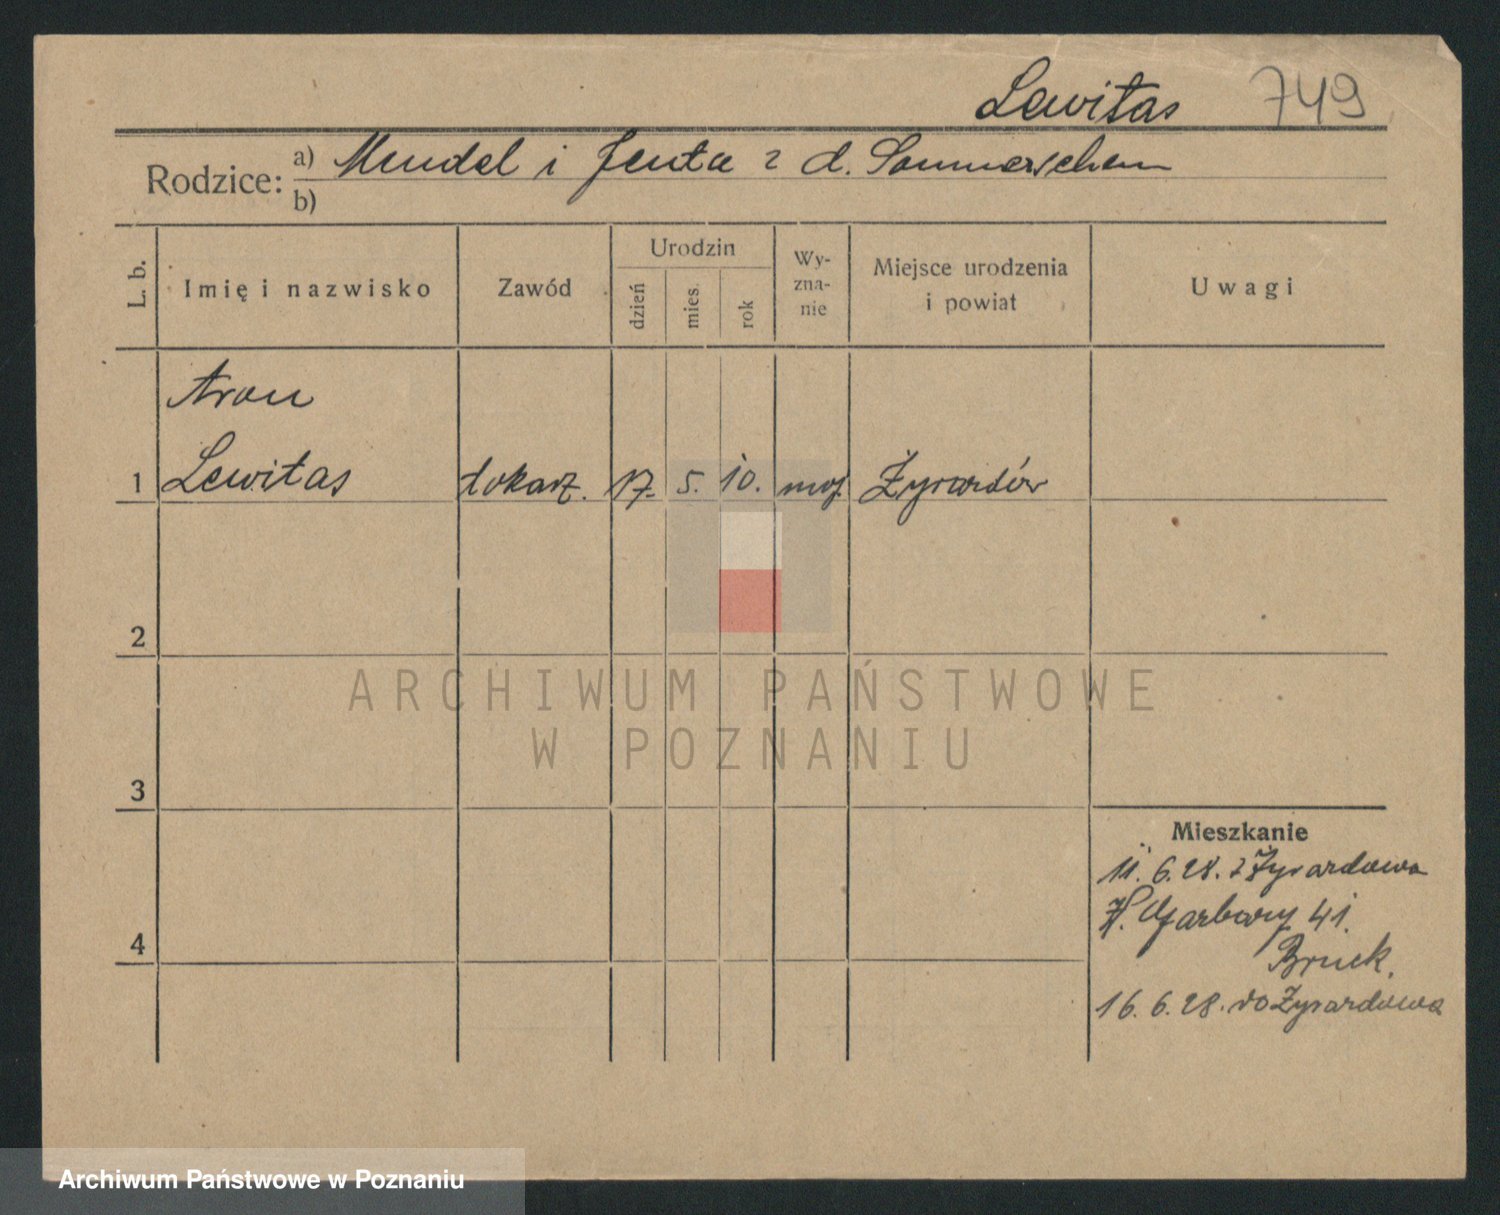 Lewitas 749
Rodzice: a) Mendel i Jenta z d. Sommerschein
b)
L. b.
Imię i nazwisko
Zawód
Urodzin
dzień
mies.
rok
Wy-
zna-
nie
Miejsce urodzenia
i powiat
Uwagi
Aron
1 Lewitas tokarz. 17. 5. 10. moj. Żyrardów
2
3
4
Mieszkanie
11. 6. 28. z Żyrardowa
Garbary 41.
Bruck.
16. 6. 28. do Żyrardowa
ARCHIWUM PAŃSTWOWE
W POZNANIU
Archiwum Państwowe w Poznaniu